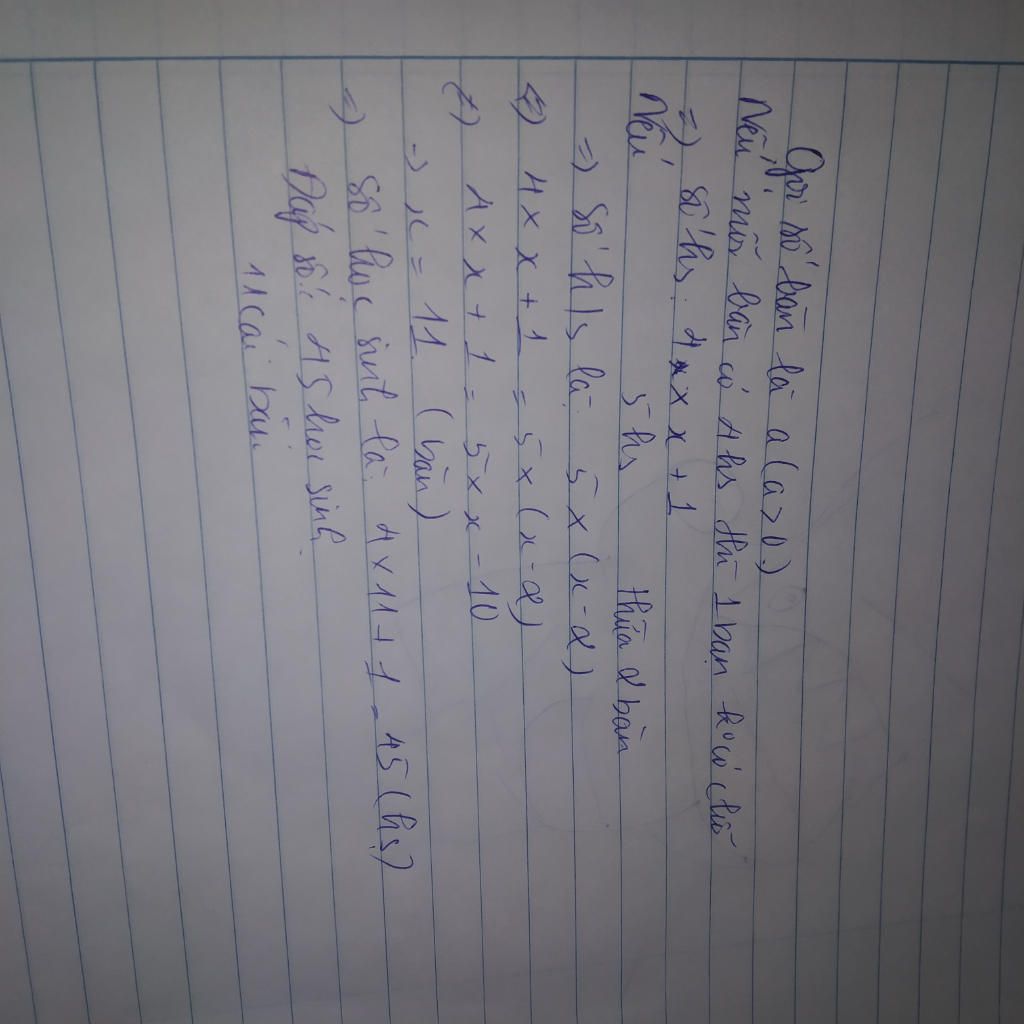 Gọi số bàn là a (a > 0)
Nếu mỗi bàn có 4 hs thì 1 bạn ko có chỗ
=) số hs: 4 x x + 1
Nếu 5 hs thừa 2 bàn
=) số h/s là: 5 x (x - 2)
4 x x + 1 = 5 x (x - 2)
4 x x + 1 = 5 x x - 10
-) x = 11 (bàn)
=) số học sinh là: 4 x 11 + 1 = 45 (hs)
Đáp số: 45 học sinh.
11 cái bàn.